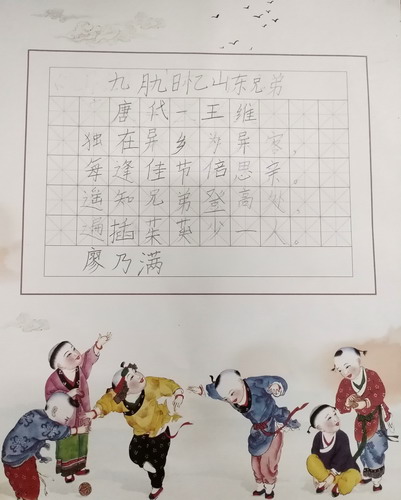 九月九日忆山东兄弟
唐代一王维
独在异乡为异客。
每逢佳节倍思亲。
遥知兄弟登高处。
遍插茱英少一人。
廖乃满